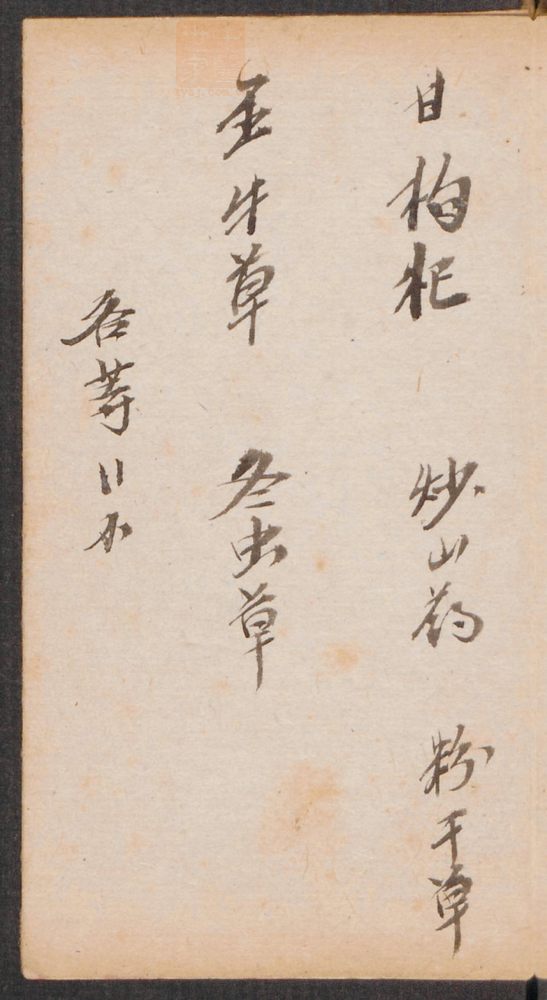 甘枸杞 炒山药 粉干草
金牛草 冬虫草
各等